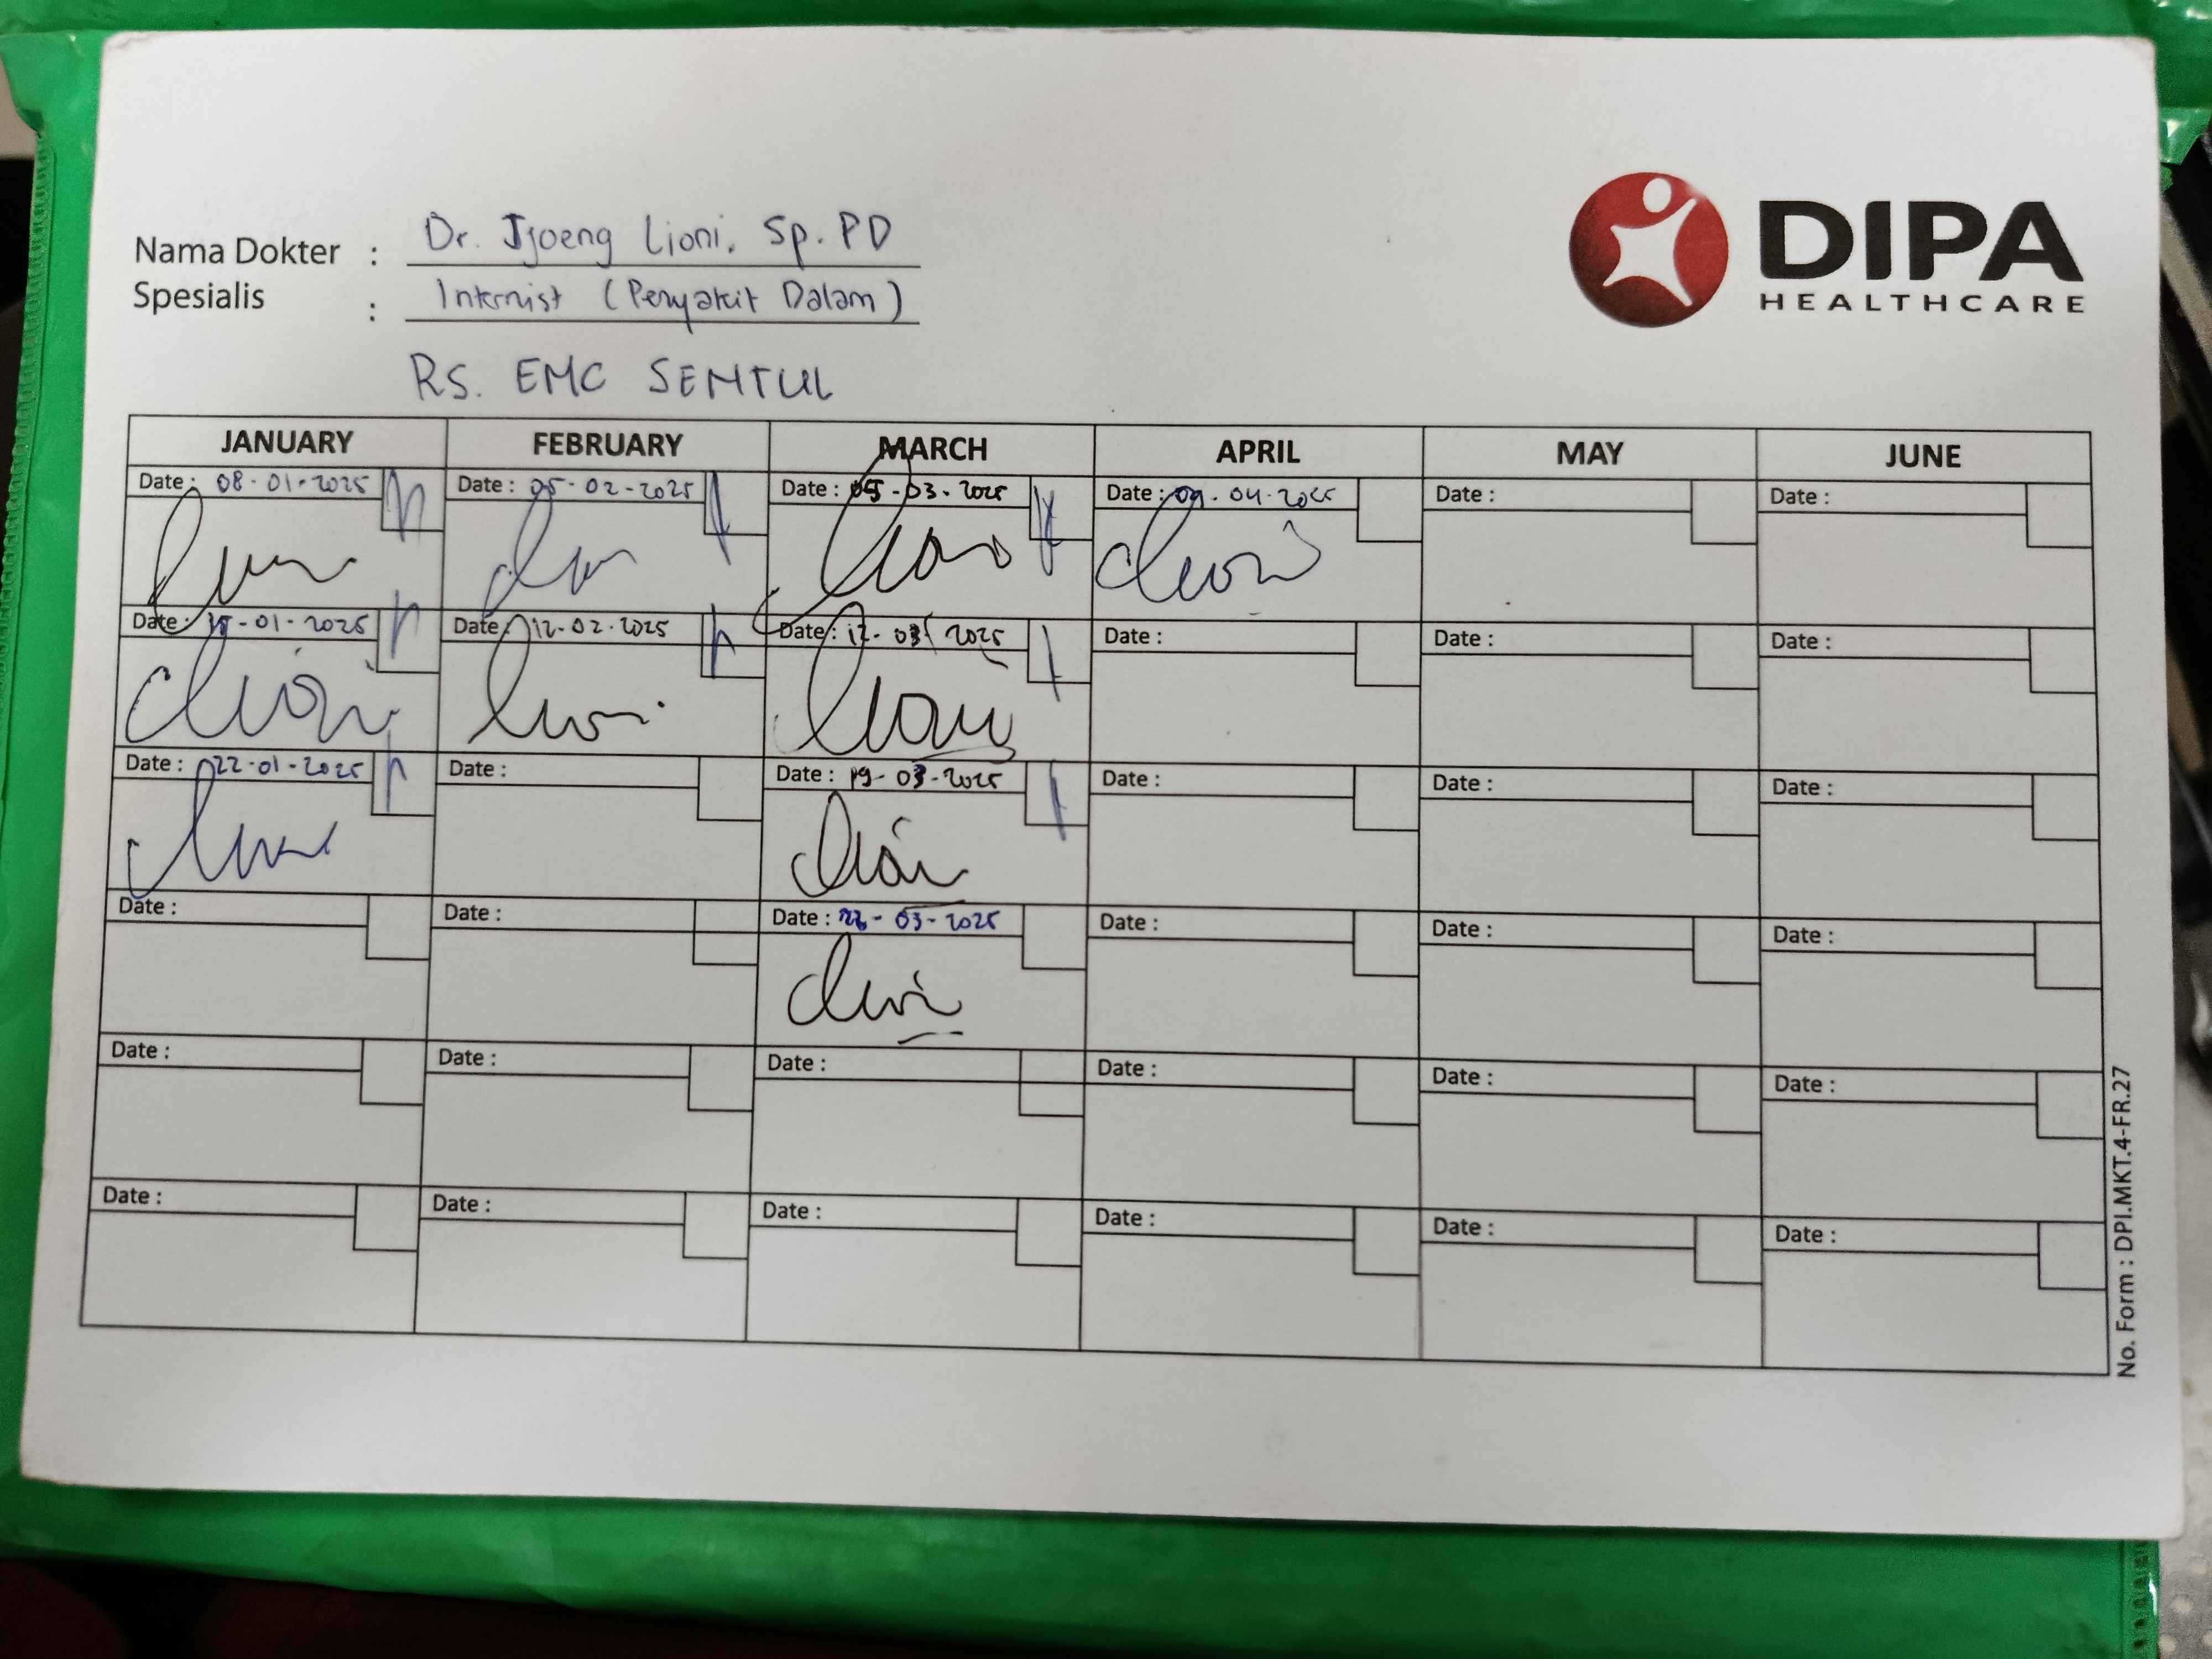 DIPA
HEALTHCARE
Nama Dokter : Dr. Tjoeng Lioni, Sp. PD
Spesialis : Internist (Penyakit Dalam)
RS. EMC SENTUL
JANUARY FEBRUARY MARCH APRIL MAY JUNE
Date : 08-01-2025 Date : 05-02-2025 Date : 05-03-2025 Date : 09-04-2025 Date : Date :
Date : 15-01-2025 Date : 12-02-2025 Date : 12-03-2025 Date : Date : Date :
Date : 22-01-2025 Date : Date : 19-03-2025 Date : Date : Date :
Date : Date : Date : 03-2025 Date : Date : Date :
Date : Date : Date : Date : Date : Date :
Date : Date : Date : Date : Date : Date :
No. Form : DPI.MKT.4-FR.27